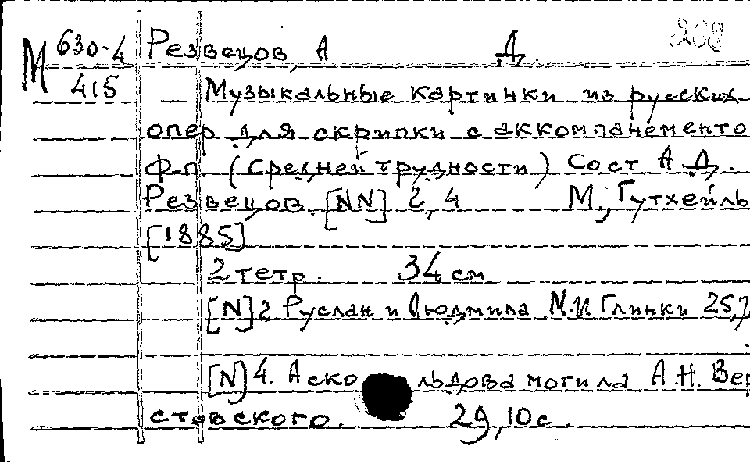 М 630-4 Резвецов, А Д. 208
415 Музыкальные картинки из русских
опер для скрипки с аккомпанементо
Ф-п. (Средней трудности) Сост А. Д.
Резвецов. [NN] 2, 4 М., Гутхейль
[1885]
2 тетр. 34 см
[N] 2 Руслан и Людмила М. И Глинки 25,
[N] 4. Аско льдова могила А. Н. Вер
стовского. 29, 10 с.